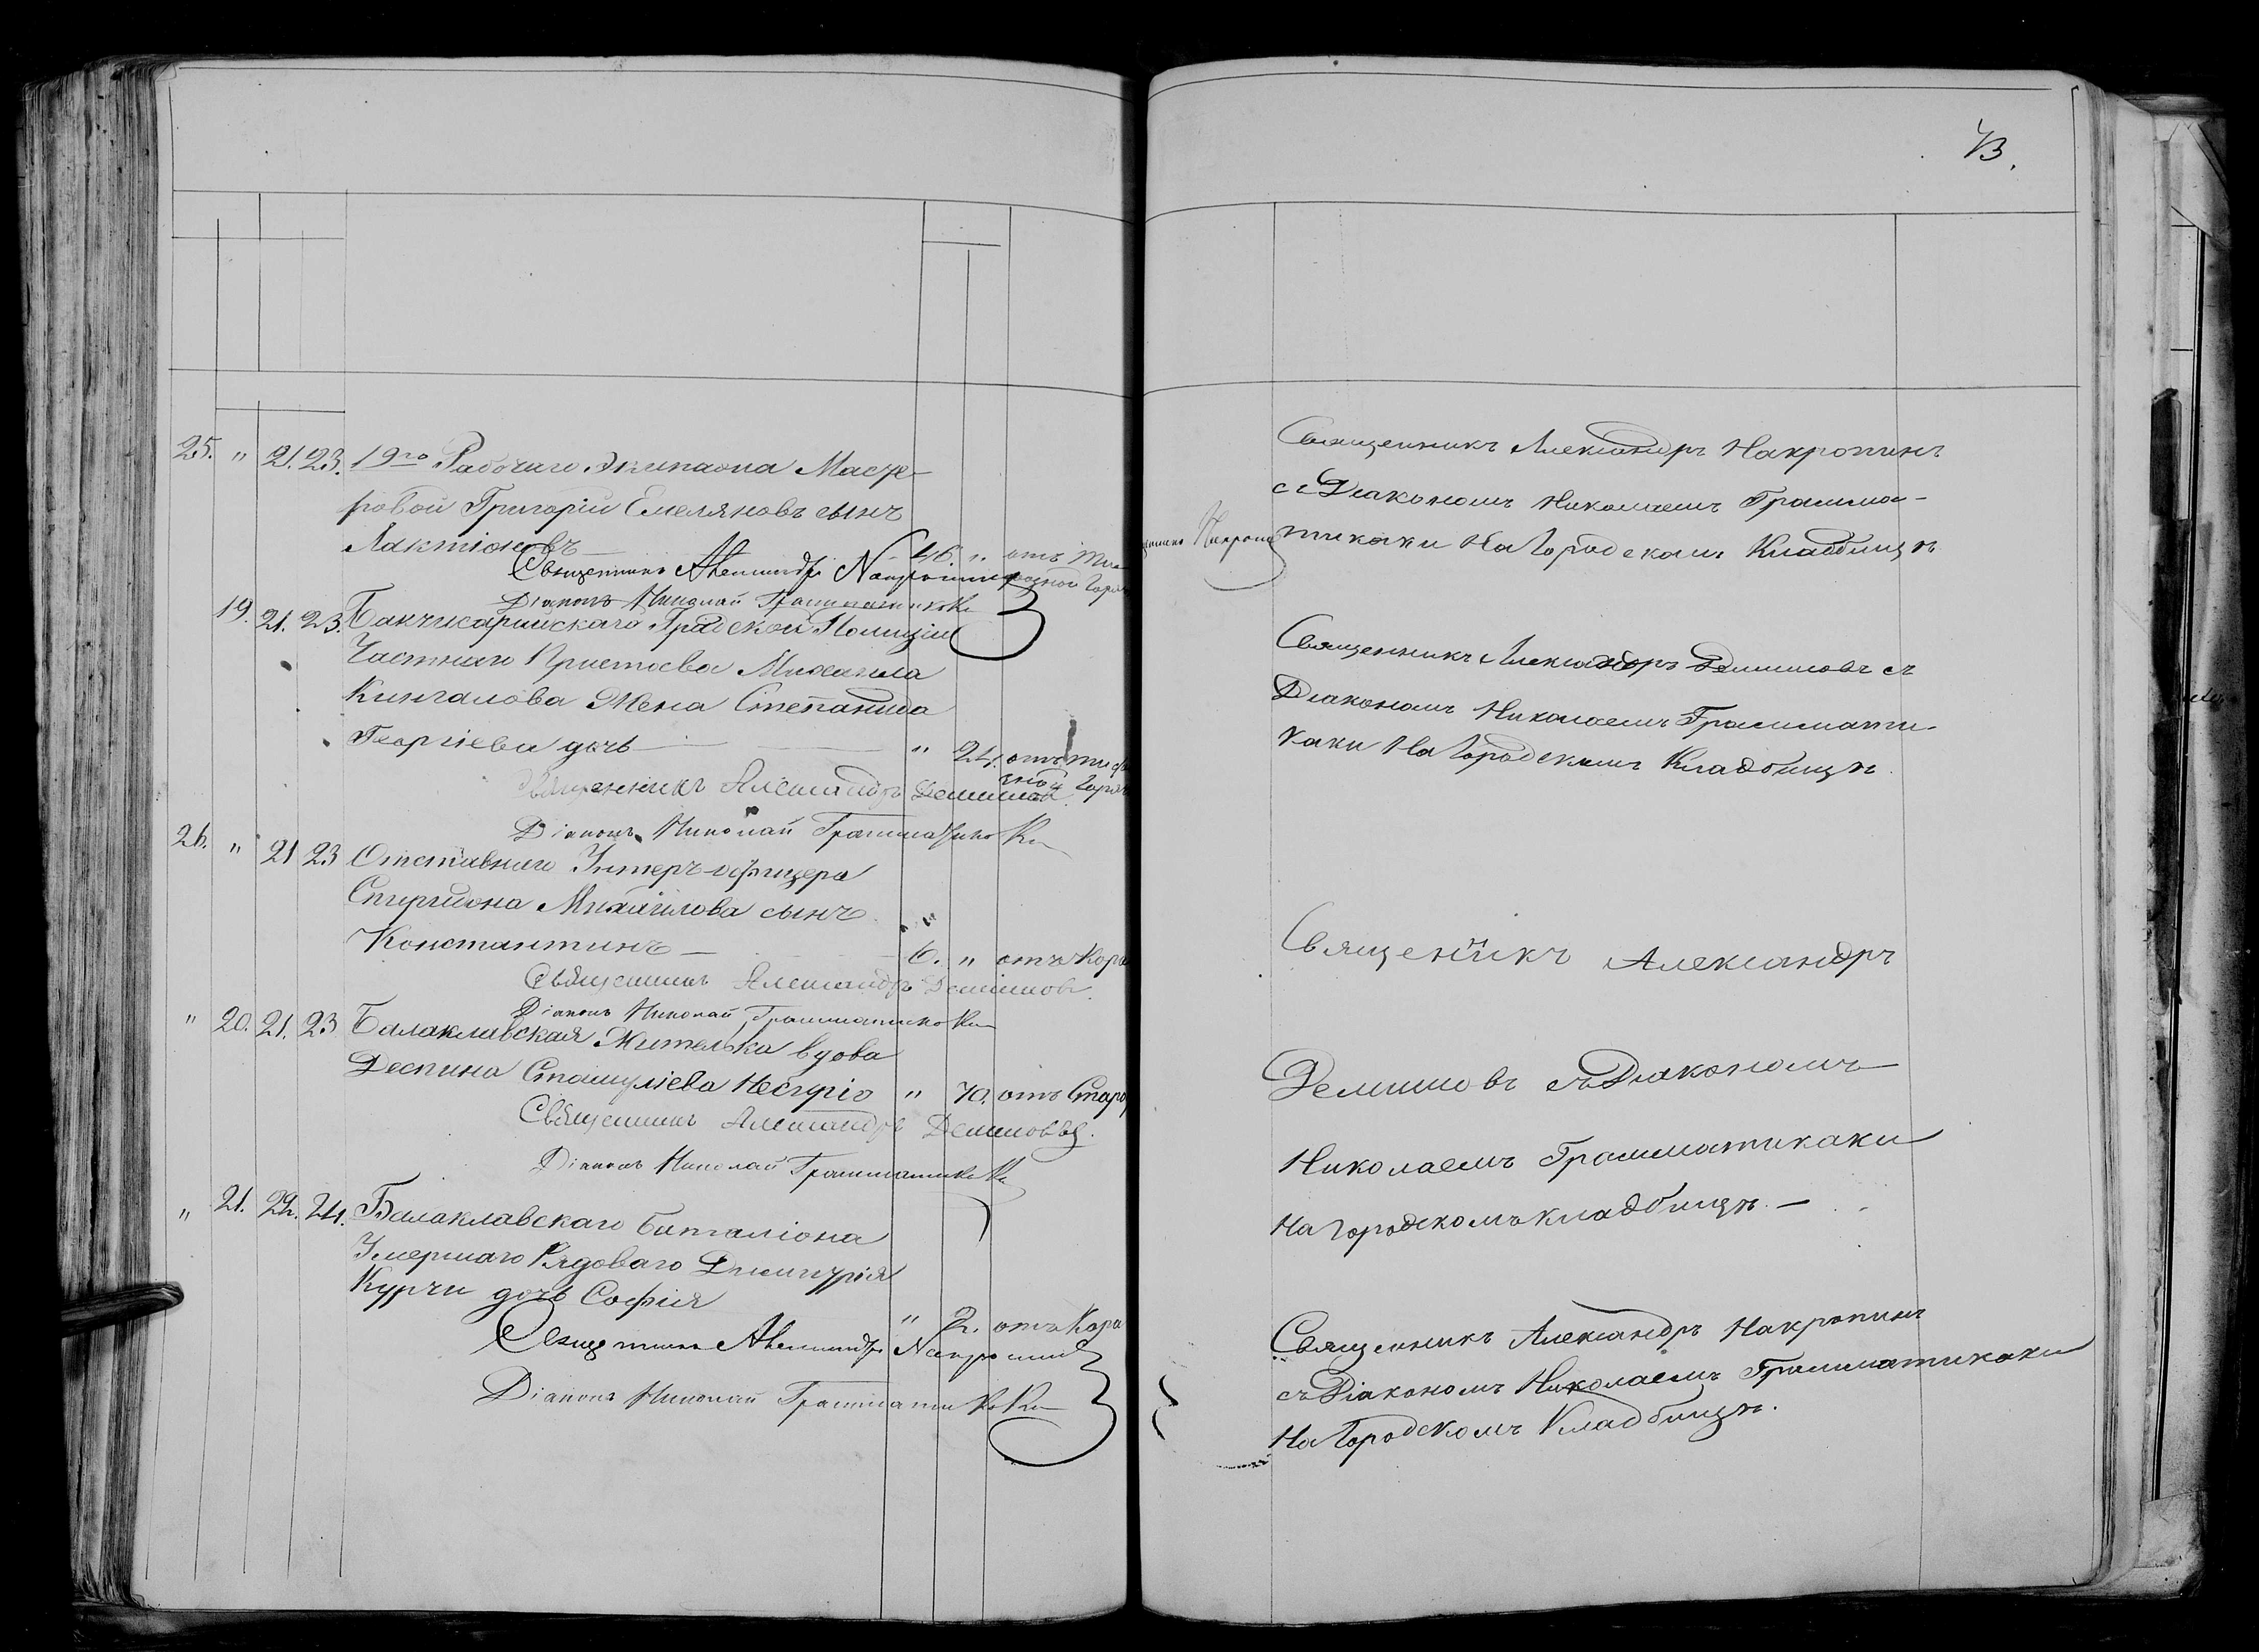 73.
25. " 21. 23. 19го Рабочаго Экипажа Масте-
ровой Григорій Емеляновъ сынъ
Лактіоновъ — 46. " отъ
Священникъ Александръ Накропинъ
Діаконъ Николай Грамматикаки
19. 21. 23. Бакчисарайскаго Градской Полиціи
Частнаго Пристава Михаила
Кингалова Жена Степанида
Георгіева дочь — " 24. отъ
Священникъ Александръ Демяновъ
Діаконъ Николай Грамматикаки
26. " 21 23 Отставнаго Унтеръ-офицера
Спиридона Михайлова сынъ
Константинъ — 6. " отъ Кора
Священникъ Александръ Демяновъ
Діаконъ Николай Грамматикаки
" 20. 21. 23 Балаклавская Жителька вдова
Деспина " 70. отъ Стар
Священникъ Александръ Демяновъ
Діаконъ Николай Грамматикаки
" 21. 22. 24. Балаклавскаго Баталіона
Умершаго Рядоваго Димитрія
Курчи дочь Софія " 2. отъ Кора
Священникъ Александръ Накропинъ
Діаконъ Николай Грамматикаки
Священникъ Александръ Накропинъ
съ Діакономъ Николаемъ Грамма-
тикаки На Городскомъ Кладбищѣ
Священникъ Александръ Демяновъ съ
Діакономъ Николаемъ Граммати-
каки На Городскомъ Кладбищѣ.
Священикъ Александръ
Демяновъ съ Діакономъ
Николаемъ Грамматикаки
На Городскомъ кладбищѣ. —
Священникъ Александръ Накропинъ
съ Діакономъ Николаемъ Грамматикаки
На Городскомъ Кладбищѣ.